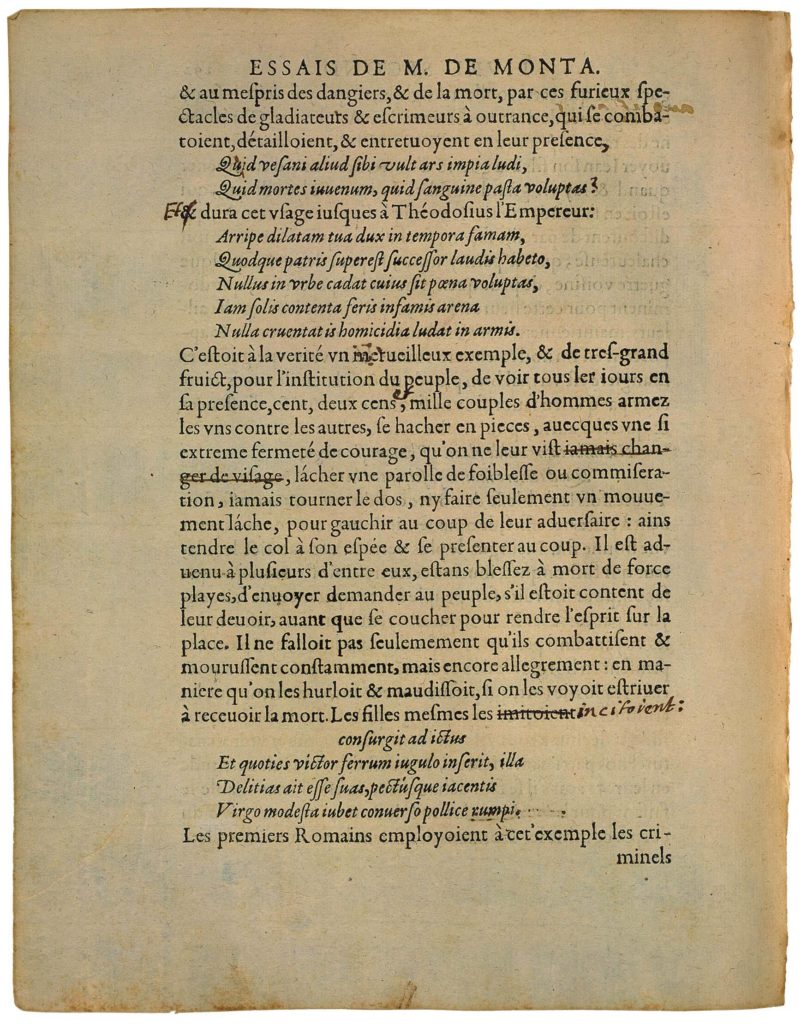 ESSAIS DE M. DE MONTA.
& au meſpris des dangiers, & de la mort, par ces furieux ſpe-
ctacles de gladiateurs & eſcrimeurs à outrance, qui ſe comba-
toient, détailloient, & entretuoyent en leur preſence,
Quid veſani aliud ſibi vult ars impia ludi,
Quid mortes iuuenum, quid ſanguine paſta voluptas?
Et dura cet vſage iuſques à Théodoſius l'Empereur:
Arripe dilatam tua dux in tempora famam,
Quodque patris ſupereſt ſucceſſor laudis habeto,
Nullus in vrbe cadat cuius ſit pœna voluptas,
Iam ſolis contenta feris infamis arena
Nulla cruentatis homicidia ludat in armis.
C'eſtoit à la verité vn merueilleux exemple, & de treſ-grand
fruict, pour l'inſtitution du peuple, de voir tous ler iours en
ſa preſence, cent, deux cens, et mille couples d'hommes armez
les vns contre les autres, ſe hacher en pieces, auecques vne ſi
extreme fermeté de courage, qu'on ne leur viſt iamais chan-
ger de viſage, lácher vne parolle de foibleſſe ou commiſera-
tion, iamais tourner le dos, ny faire ſeulement vn mouue-
ment láche, pour gauchir au coup de leur aduerſaire : ains
tendre le col à ſon eſpée & ſe preſenter au coup. Il eſt ad-
uenu à pluſieurs d'entre eux, eſtans bleſſez à mort de force
playes, d'enuoyer demander au peuple, s'il eſtoit content de
leur deuoir, auant que ſe coucher pour rendre l'eſprit ſur la
place. Il ne falloit pas ſeulemement qu'ils combattiſent &
mouruſſent conſtamment, mais encore allegrement : en ma-
niere qu'on les hurloit & maudiſſoit, ſi on les voyoit eſtriuer
à receuoir la mort. Les filles meſmes les imitoient incitoient:
conſurgit ad ictus
Et quoties victor ferrum iugulo inſerit, illa
Delitias ait eſſe ſuas, pectúſque iacentis
Virgo modeſta iubet conuerſo pollice rumpi.
Les premiers Romains employoient à cet'exemple les cri-
minels